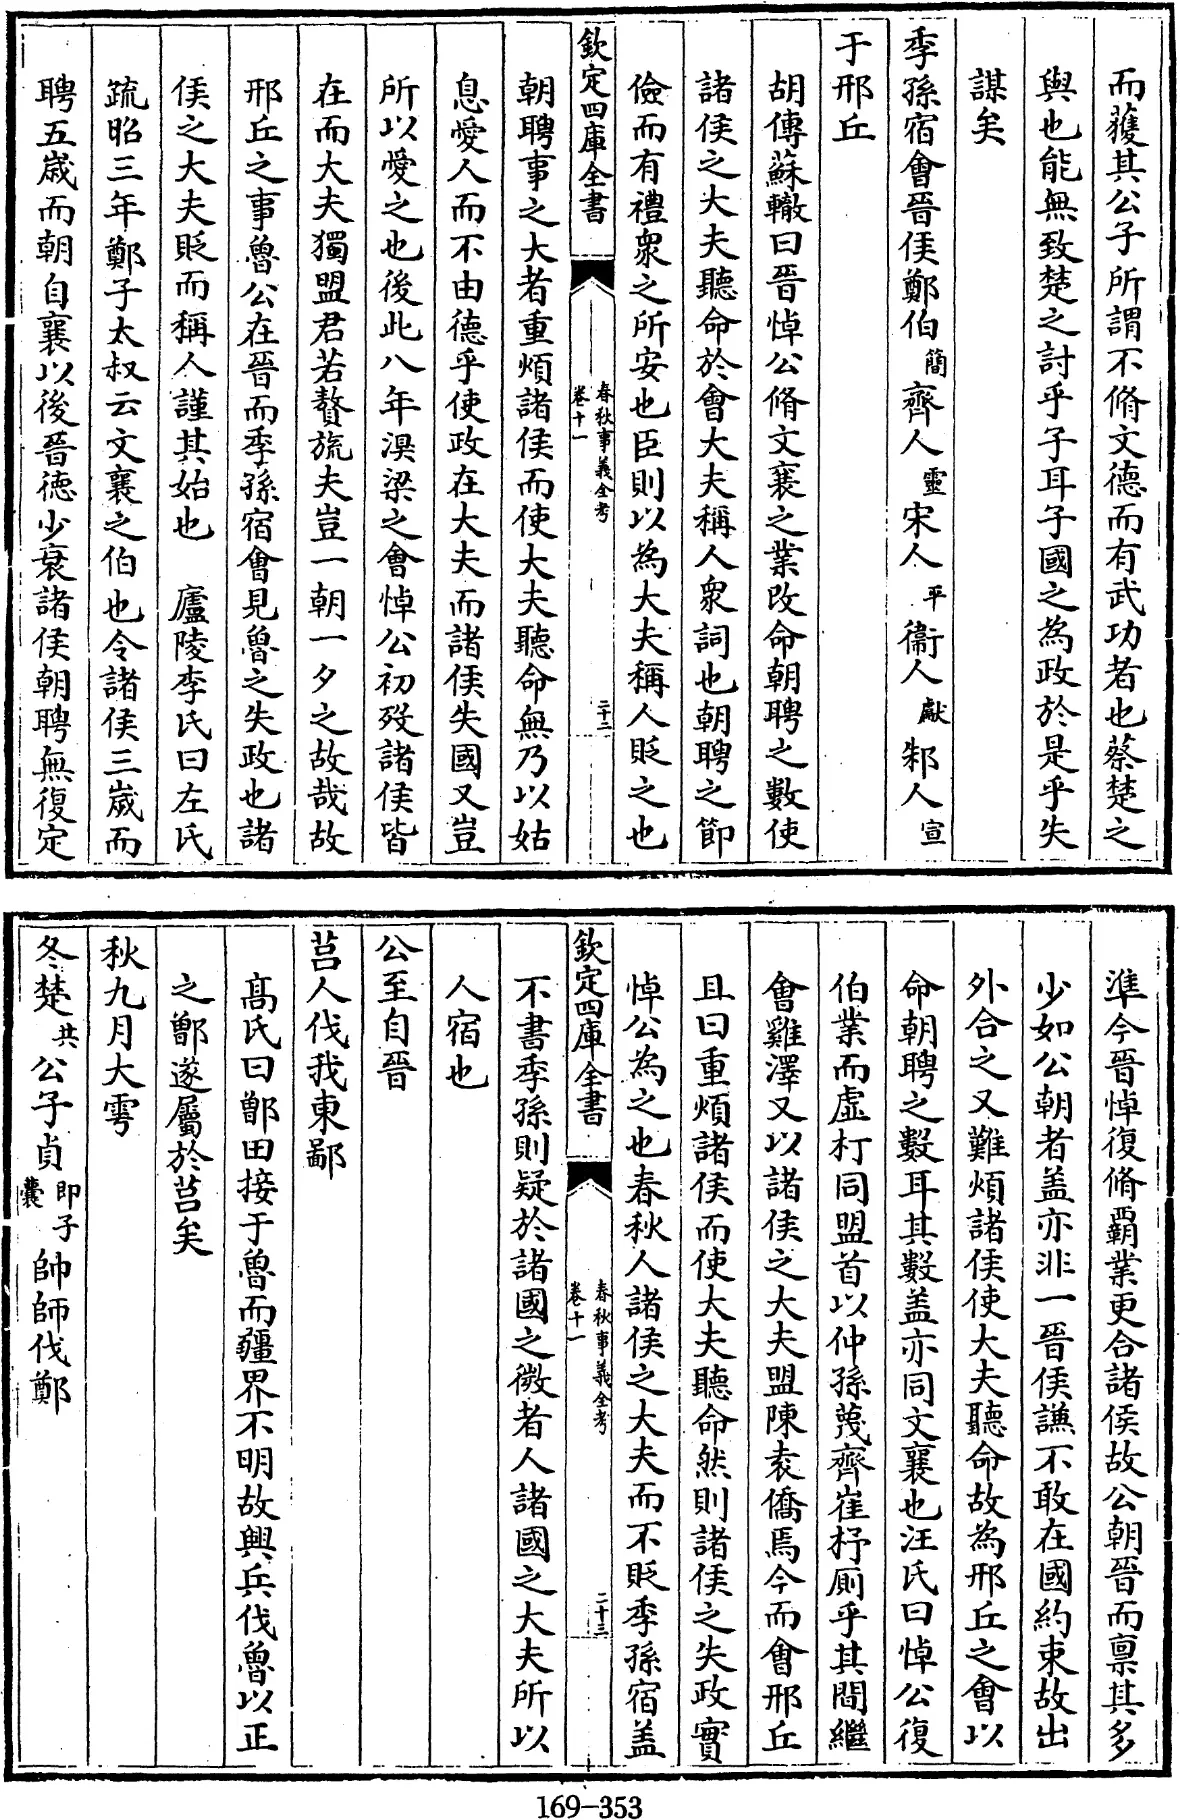 而獲其公子所謂不脩文德而有武功者也蔡楚之
與也能無致楚之討乎子耳子國之為政於是乎失
謀矣
季孫宿會晉侯鄭伯簡齊人靈宋人平衞人獻邾人宣
于邢丘
胡傳蘇轍曰晉悼公脩文襄之業改命朝聘之數使
諸侯之大夫聽命於會大夫稱人衆詞也朝聘之節
儉而有禮衆之所安也臣則以為大夫稱人貶之也
欽定四庫全書
春秋事義全考
卷十一
二十二
朝聘事之大者重煩諸侯而使大夫聽命無乃以姑
息愛人而不由德乎使政在大夫而諸侯失國又豈
所以愛之也後此八年溴梁之會悼公初歿諸侯皆
在而大夫獨盟君若贅旒夫豈一朝一夕之故哉故
邢丘之事魯公在晉而季孫宿會見魯之失政也諸
侯之大夫貶而稱人謹其始也　廬陵李氏曰左氏
疏昭三年鄭子太叔云文襄之伯也令諸侯三歲而
聘五歲而朝自襄以後晉德少衰諸侯朝聘無復定
準今晉悼復脩覇業更合諸侯故公朝晉而禀其多
少如公朝者盖亦非一晉侯謙不敢在國約束故出
外合之又難煩諸侯使大夫聽命故為邢丘之會以
命朝聘之數耳其數盖亦同文襄也汪氏曰悼公復
伯業而虛朾同盟首以仲孫蔑齊崔杼厠乎其間繼
會雞澤又以諸侯之大夫盟陳袁僑焉今而會邢丘
且曰重煩諸侯而使大夫聽命然則諸侯之失政實
悼公為之也春秋人諸侯之大夫而不貶季孫宿盖
欽定四庫全書
春秋事義全考
卷十一
二十三
不書季孫則疑於諸國之微者人諸國之大夫所以
人宿也
公至自晉
莒人伐我東鄙
高氏曰鄫田接于魯而疆界不明故興兵伐魯以正
之鄫遂屬於莒矣
秋九月大雩
冬楚共公子貞即子囊帥師伐鄭
169-353